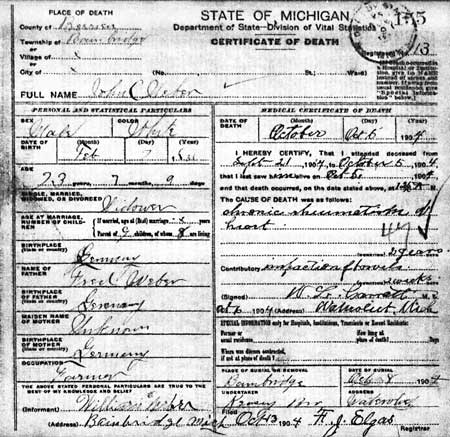 PLACE OF DEATH
County of Berrien
Township of Bainbridge
Village of
City of
STATE OF MICHIGAN
Department of State—Division of Vital Statistics
CERTIFICATE OF DEATH
Registered No. 113
(No. St.; Ward)
FULL NAME John C Weber
PERSONAL AND STATISTICAL PARTICULARS
SEX Male
COLOR White
DATE OF BIRTH
(Month) (Day) (Year)
Feb
AGE
73 years 7 months 9 days
SINGLE, MARRIED, WIDOWED, OR DIVORCED Widower
AGE AT MARRIAGE, NUMBER OF CHILDREN
If married, age at (first) marriage years
Parent of 9 children, of whom 8 are living
BIRTHPLACE (State or country) Germany
NAME OF FATHER Fred Weber
BIRTHPLACE OF FATHER (State or country) Germany
MAIDEN NAME OF MOTHER Unknown
BIRTHPLACE OF MOTHER (State or country) Germany
OCCUPATION Farmer
THE ABOVE STATED PERSONAL PARTICULARS ARE TRUE TO THE BEST OF MY KNOWLEDGE AND BELIEF
(Informant) William Weber
(Address) Bainbridge Mich
MEDICAL CERTIFICATE OF DEATH
DATE OF DEATH October Oct 5 1904
(Month) (Day) (Year)
I HEREBY CERTIFY, That I attended deceased from
Sept 21 1904 to October 5 1904
that I last saw him alive on Oct 5 1904
and that death occurred, on the date stated above, at M.
The CAUSE OF DEATH was as follows:
chronic rheumatism of
heart
47
2 years
Contributory impaction of bowels
2 weeks
(Signed) M. D.
Oct 6 1904 (Address) Watervliet, Mich
SPECIAL INFORMATION only for Hospitals, Institutions, Transients or Recent Residents:
Former or usual residence
How long at place of death? days
Where was disease contracted, if not at place of death?
PLACE OF BURIAL OR REMOVAL Bainbridge
DATE OF BURIAL Oct 8 1904
UNDERTAKER
ADDRESS Watervliet
Filed Oct 13 1904 F. J. Elgas
Registrar